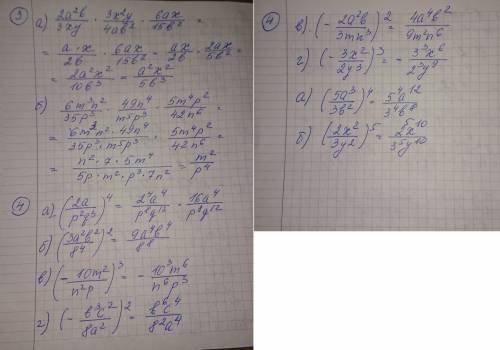 ③ а) 2a²b/3xy · 3x²y/4ab² · 6ax/15b² =
= a·x/2b · 6ax/15b² = ax/2b · 2ax/5b² =
= 2a²x²/10b³ = a²x²/5b³
б) 6m³n²/35p³ · 49n⁴/m⁵p³ · 5m⁴p²/42n⁶ =
= 6m³n²·49n⁴/35p³·m⁵p³ · 5m⁴p²/42n⁶ =
= n²·7·5m⁴/5p·m²·p³·7n² = m²/p⁴
④ а) -(2a/p²q³)⁴ = 2⁴a⁴/p⁸q¹² · 16a⁴/p⁸q¹²
б) (3a²b²/8⁴)² = 9a⁴b⁴/8⁸
в) (-10m²/n²p)³ = -10³m⁶/n⁶p³
г) (-b³c²/8a²)² = b⁶c⁴/8²a⁴
④ в) (-2a²b/3mn³)² = 4a⁴b²/9m²n⁶
г) (-3x²/2y3)³ = -3³x⁶/2³y⁹
а) (5a³/3b²)⁴ = 5⁴a¹²/3⁴b⁸
б) (2x²/3y2)⁵ = 2⁵x¹⁰/3⁵y¹⁰